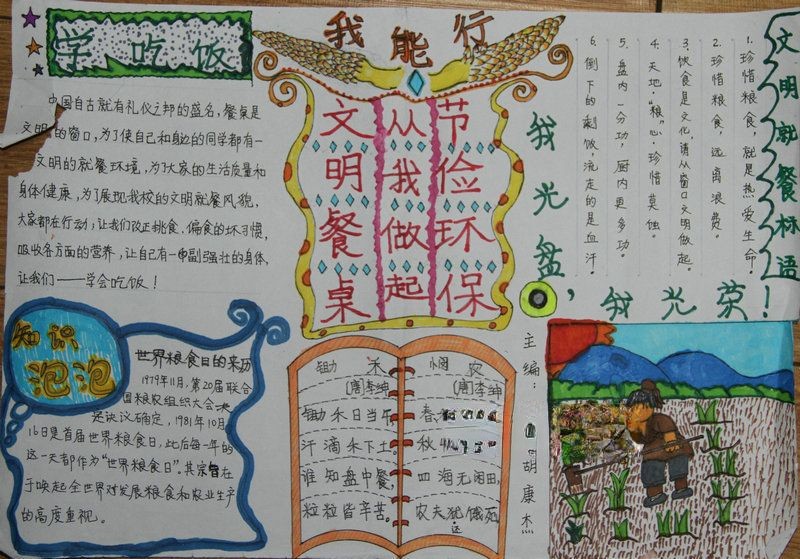 学吃饭
中国自古就有礼仪之邦的盛名，餐桌是
文明的窗口，为了使自己和身边的同学都有一
文明的就餐环境，为了大家的生活质量和
身体健康，为了展现我校的文明就餐风貌，
大家都在行动；让我们改正挑食，偏食的坏习惯，
吸收各方面的营养，让自己有一副强壮的身体，
让我们——学会吃饭！
我能行
节俭环保
从我做起
文明餐桌
我光盘，我光荣！
文明就餐标语
1. 珍惜粮食，就是热爱生命。
2. 珍惜粮食，远离浪费。
3. 饮食是文化，请从窗口文明做起。
4. 天地“粮”心，珍惜莫蚀。
5. 盘内一分功，厨内更多功。
6. 倒下的剩饭，流走的是血汗。
知识
泡泡
世界粮食日的来历
1979年11月，第20届联合
国粮农组织大会决
是决议确定，1981年10月
16日是首届世界粮食日，此后每一年的
这一天都作为“世界粮食日”。其宗旨在
于唤起全世界对发展粮食和农业生产
的高度重视。
锄禾
[唐]李绅
锄禾日当午
汗滴禾下土。
谁知盘中餐
粒粒皆辛苦。
悯农
[唐]李绅
春
秋
四海无闲田
农夫犹饿死
还
主编：
胡康杰